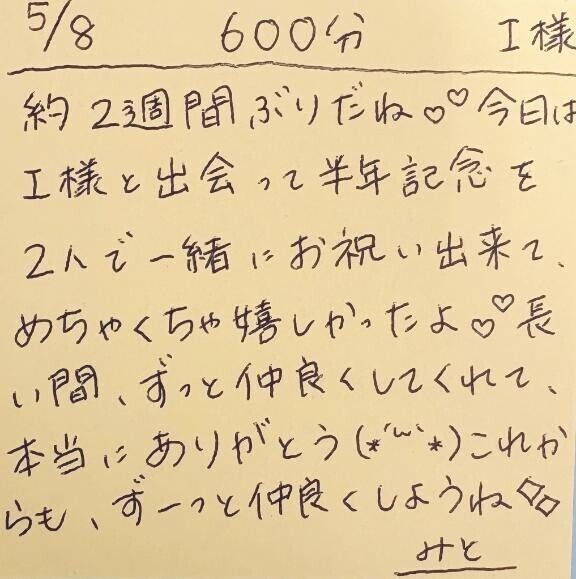 5/8 600分 I様
約2週間ぶりだね♡♡今日は
I様と出会って半年記念を
2人で一緒にお祝い出来て、
めちゃくちゃ嬉しかったよ♡♡長
い間、ずっと仲良くしてくれて、
本当にありがとう(*´ω`*)これか
らも、ずーっと仲良くしようね◇◇
みと